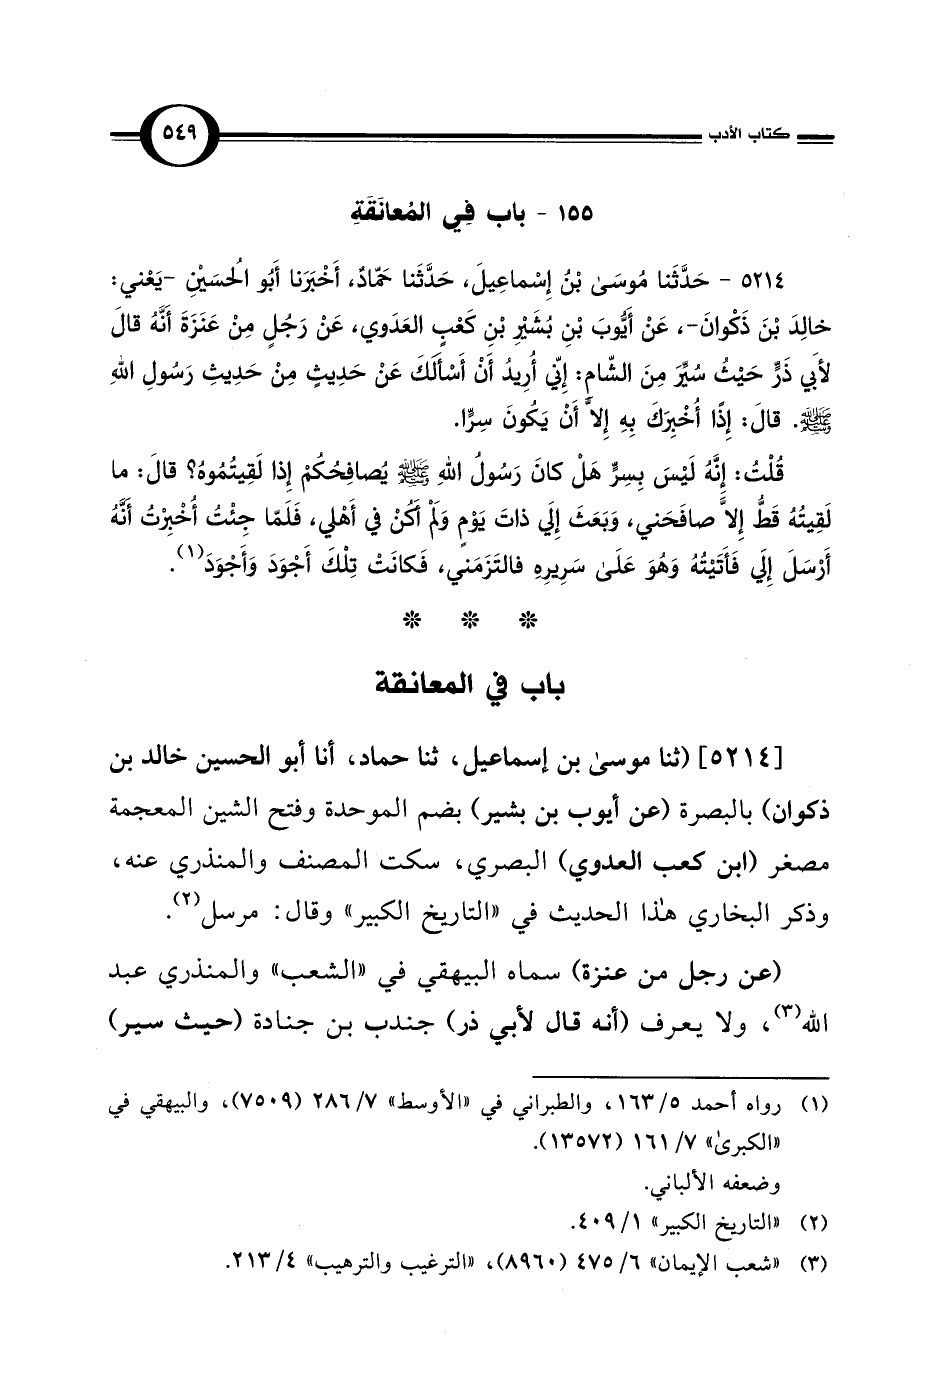 كتاب الأدب ٥٤٩
١٥٥ - باب فِي المُعانَقَةِ
٥٢١٤ - حَدَّثَنا مُوسَىٰ بْنُ إِسْماعِيلَ، حَدَّثَنا حَمّادٌ، أَخْبَرَنا أَبُو الحُسَيْنِ -يَعْني:
خالِدَ بْنَ ذَكْوانَ-، عَنْ أَيُّوبَ بْنِ بُشَيْرِ بْنِ كَعْبِ العَدَوي، عَنْ رَجُلٍ مِنْ عَنَزَةَ أَنَّهُ قالَ
لأَبي ذَرٍّ حَيْثُ سُيِّرَ مِنَ الشّامِ: إِنّي أُرِيدُ أَنْ أَسْأَلَكَ عَنْ حَدِيثٍ مِنْ حَدِيثِ رَسُولِ اللهِ
ﷺ. قالَ: إِذًا أُخْبِرَكَ بِهِ إِلاَّ أَنْ يَكُونَ سِرًّا.
قُلْتُ: إِنَّهُ لَيْسَ بِسِرٍّ هَلْ كانَ رَسُولُ اللهِ ﷺ يُصافِحُكُمْ إِذا لَقِيتُمُوهُ؟ قالَ: ما
لَقِيتُهُ قَطُّ إِلاَّ صافَحَني، وَبَعَثَ إِلَي ذاتَ يَوْمٍ وَلَمْ أَكُنْ في أَهْلي، فَلَمّا جِئْتُ أُخْبِرْتُ أَنَّهُ
أَرْسَلَ إِلَي فَأَتَيْتُهُ وَهُوَ عَلَىٰ سَرِيرِهِ فالتَزَمَني، فَكانَتْ تِلْكَ أَجْوَدَ وَأَجْوَدَ(١).
* * *
باب في المعانقة
[٥٢١٤] (ثنا موسىٰ بن إسماعيل، ثنا حماد، أنا أبو الحسين خالد بن
ذكوان) بالبصرة (عن أيوب بن بشير) بضم الموحدة وفتح الشين المعجمة
مصغر (ابن كعب العدوي) البصري، سكت المصنف والمنذري عنه،
وذكر البخاري هذا الحديث في «التاريخ الكبير» وقال: مرسل(٢).
(عن رجل من عنزة) سماه البيهقي في «الشعب» والمنذري عبد
الله(٣)، ولا يعرف (أنه قال لأبي ذر) جندب بن جنادة (حيث سير)
(١) رواه أحمد ٥/ ١٦٣، والطبراني في «الأوسط» ٧/ ٢٨٦ (٧٥٠٩)، والبيهقي في
«الكبرىٰ» ٧/ ١٦١ (١٣٥٧٢).
وضعفه الألباني.
(٢) «التاريخ الكبير» ١/ ٤٠٩.
(٣) «شعب الإيمان» ٦/ ٤٧٥ (٨٩٦٠)، «الترغيب والترهيب» ٤/ ٢١٣.